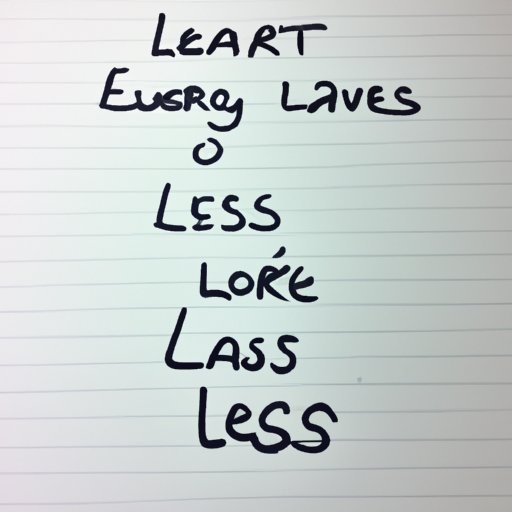 LEART
EUSROY LAVES
O
LESS
LORÉ
LASS
LESS